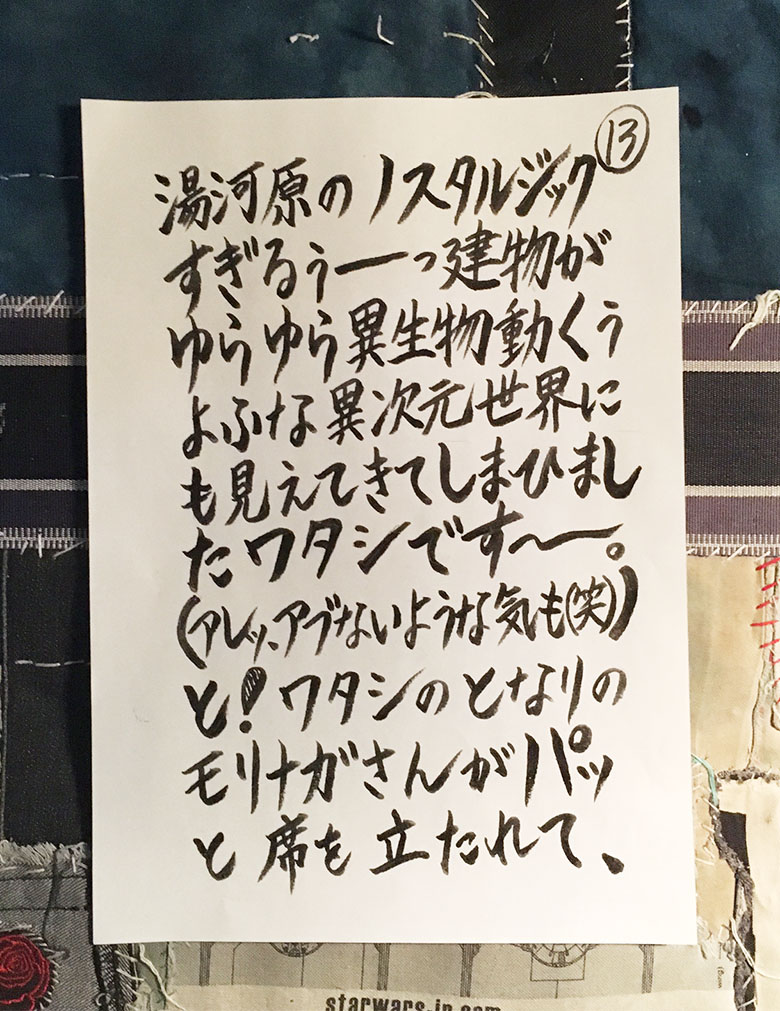 ⑬
湯河原のノスタルジック
すぎるぅーっ建物が
ゆらゆら異生物動くぅ
よふな異次元世界に
も見えてきてしまひまし
たワタシです〜。
(アレッ、アブないような気も(笑))
と!ワタシのとなりの
モリナガさんがパッ
と席を立たれて、
starwars.jp.com